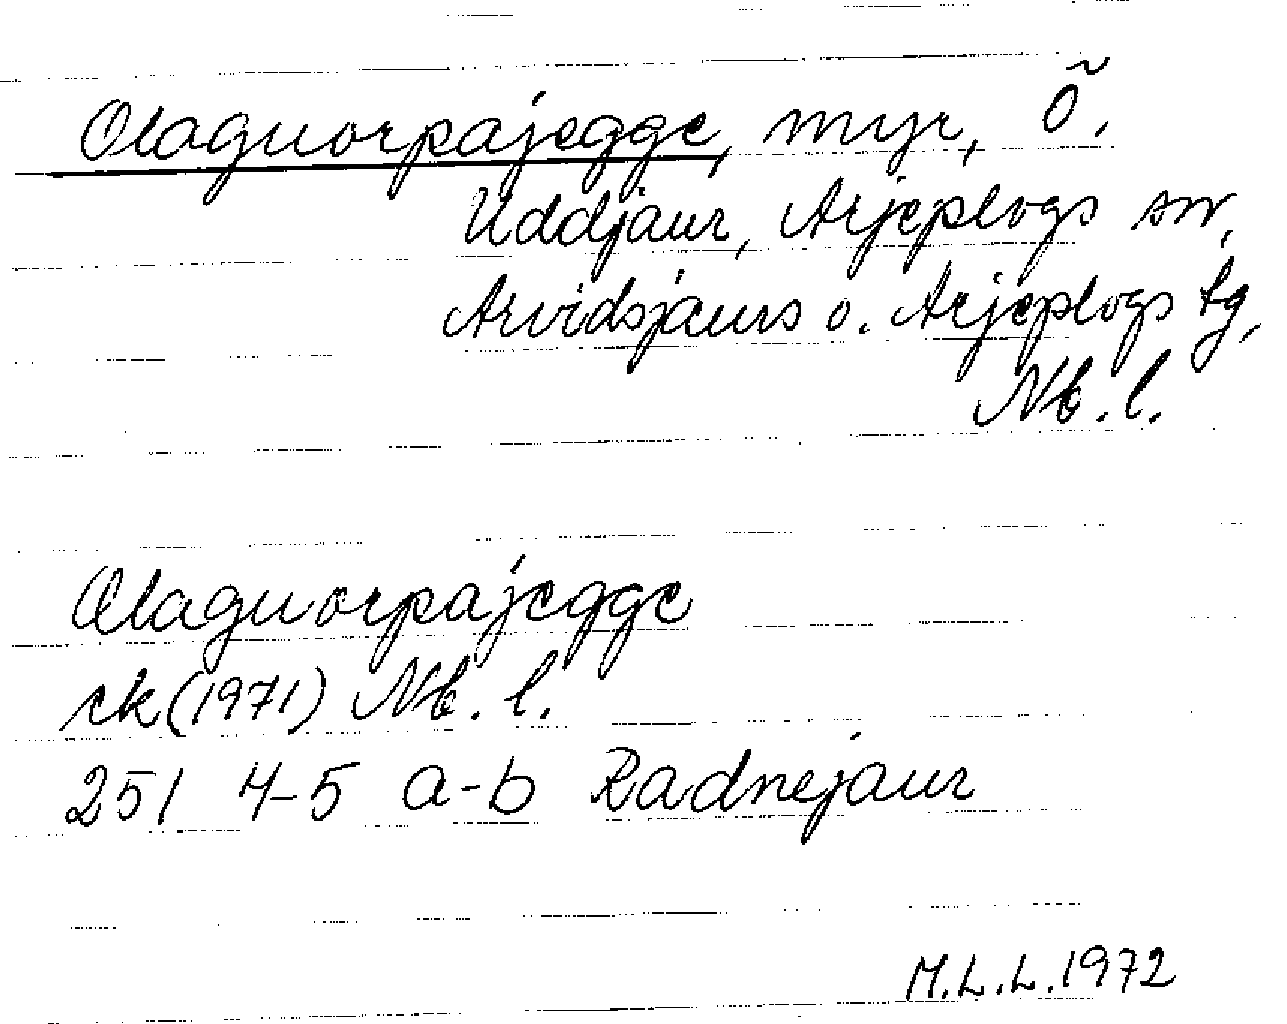 Olaguorpajegge, myr, Õ.
Uddjaur, Arjeplogs sn,
Arvidsjaurs o. Arjeplogs tg,
Nb. l.
Olaguorpajegge
ek (1971) Nb. l.
251 4-5 a-b Radnejaur
M.L.L. 1972